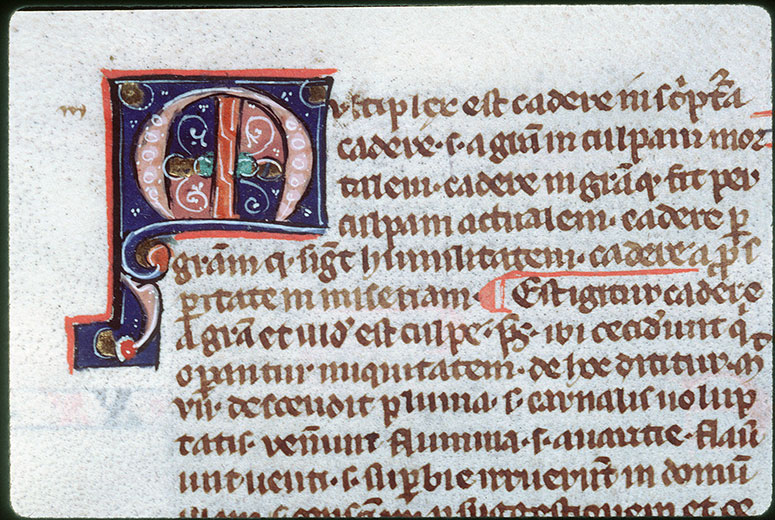 m
Multipler est cadere in scͥptͣa
cadere · s · a grā in culpam mor
talem · cadere in grāq · fit per
culpam actualem · cadere ꝑ
grām q · sigͭ humilitatem · cadere a ꝓs
ꝑitate in miseriam · Est igitur cadere
a grā et uidͦ est culpe · ps̄ · ibi ceciderunt qͥ
oꝑantur iniquitatem · de hoc dicitur · M
vii · descendit pluuia · s · carnalis uolup
tatis · veniunt flumina · s · auaritie · flau
unt uenti · s · suꝑbie irruerūt in domū